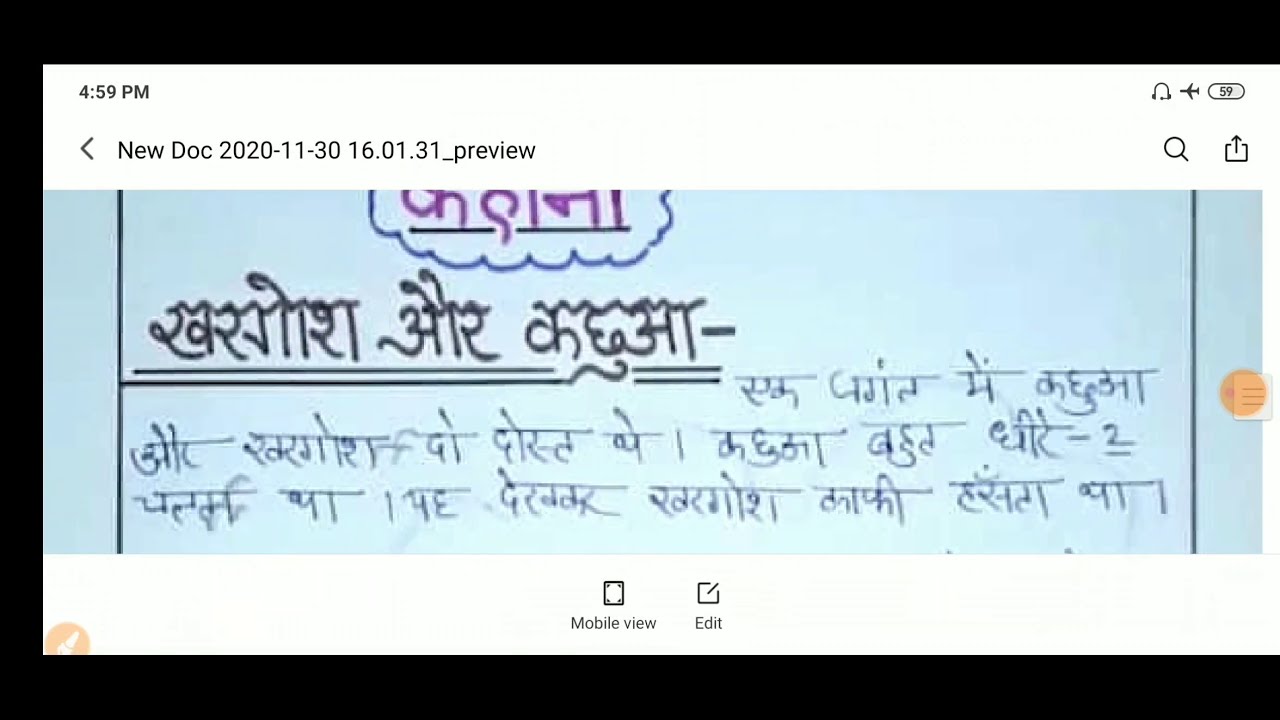 4:59 PM
59
New Doc 2020-11-30 16.01.31_preview
कहानी
खरगोश और कछुआ-
एक में कछुआ
और खरगोश दो दोस्त थे । कछुआ बहुत धीरे-२
चलता था । यह देखकर खरगोश काफी हँसता था ।
Mobile view
Edit